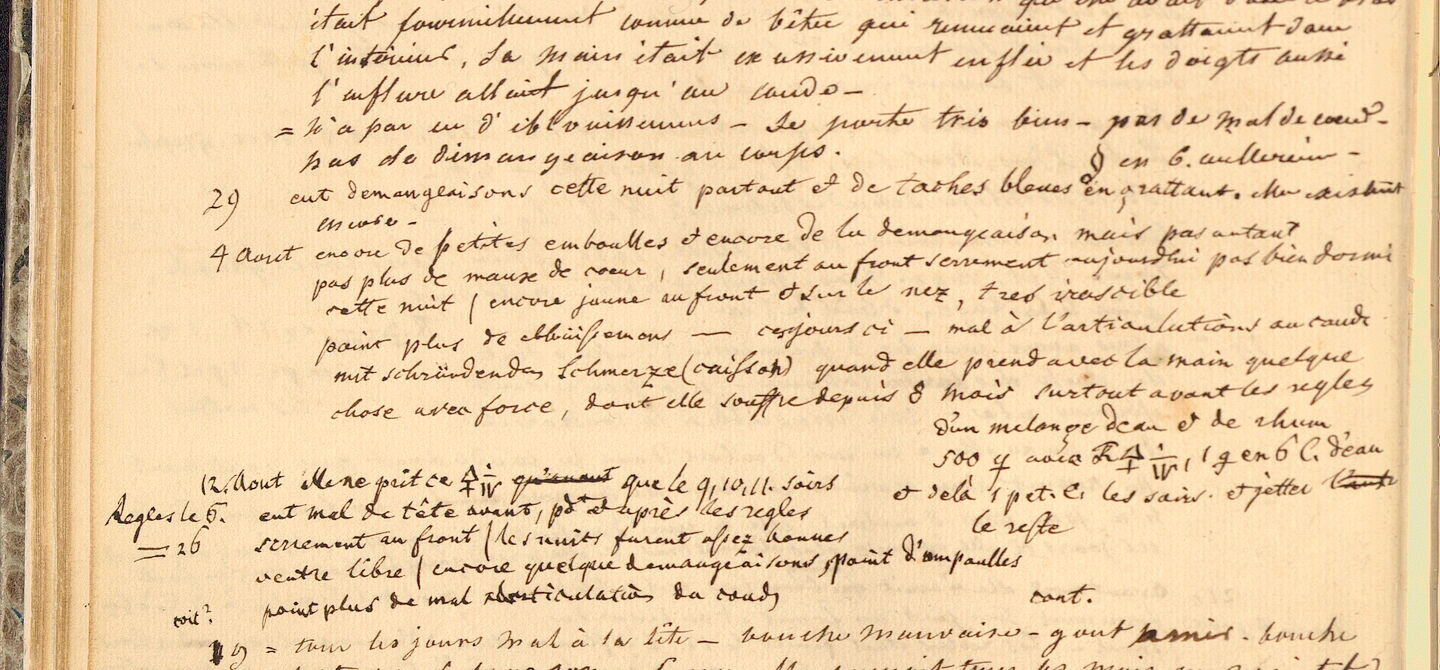 était fourmillement comme de bêtes qui remuaient et grattaient dans
l'intérieur, La main était excessivement enflée et les doigts aussi
l'enflure allait jusqu'au coude —
= N'a pas eu d'éblouissemens — Se porte très bien — pas de mal de coeur —
pas de démangeaison au corps. § en 6. cuillerées —
29 eut demangeaisons cette nuit partout et de taches bleues en grattant.
encore —
4 Aout encore de petites emboulles et encore de la demangeaison mais pas autant
pas plus de maux de coeur, seulement au front serrement aujourdhui pas bien dormi
cette nuit / encore jaune au front et sur le nez, tres irascible
point plus de — ces jours ci — mal à l'articulations au coude
mit schründenden Schmerze (caisson) quand elle prend avec la main quelque
chose avec force, dont elle souffre depuis 8 mois surtout avant les regles
d'un melange d'eau et de rhum
500 avec , 1 en 6 C. d'eau
12. Aout elle ne prit ce que le 9, 10, 11. soirs
et delà 1 pet. C. les soirs. et jetter
Regles le 6. eut mal de tête avant, pdt et après les regles
le reste
— 26 serrement au front / les nuits furent assez bonnes
ventre libre / encore quelque demangeaisons, point d'ampoulles
coit? point plus de mal articulation du coude cont.
19 = tous les jours mal à la tête — bouche mauvaise — gout amer. bouche